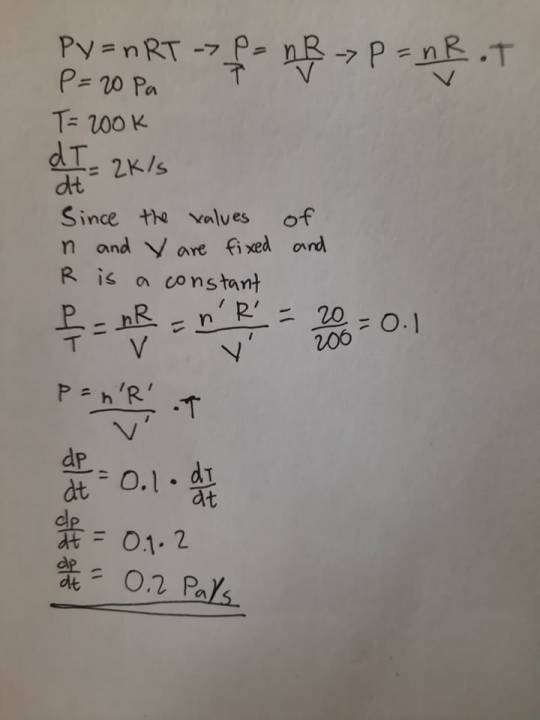 PV = nRT -> P/T = nR/V -> P = nR/V · T
P = 20 Pa
T = 200 K
dT/dt = 2K/s
Since the values of
n and V are fixed and
R is a constant
P/T = nR/V = n'R'/V' = 20/200 = 0.1
P = n'R'/V' · T
dP/dt = 0.1 · dT/dt
dp/dt = 0.1 · 2
dp/dt = 0.2 Pa/s